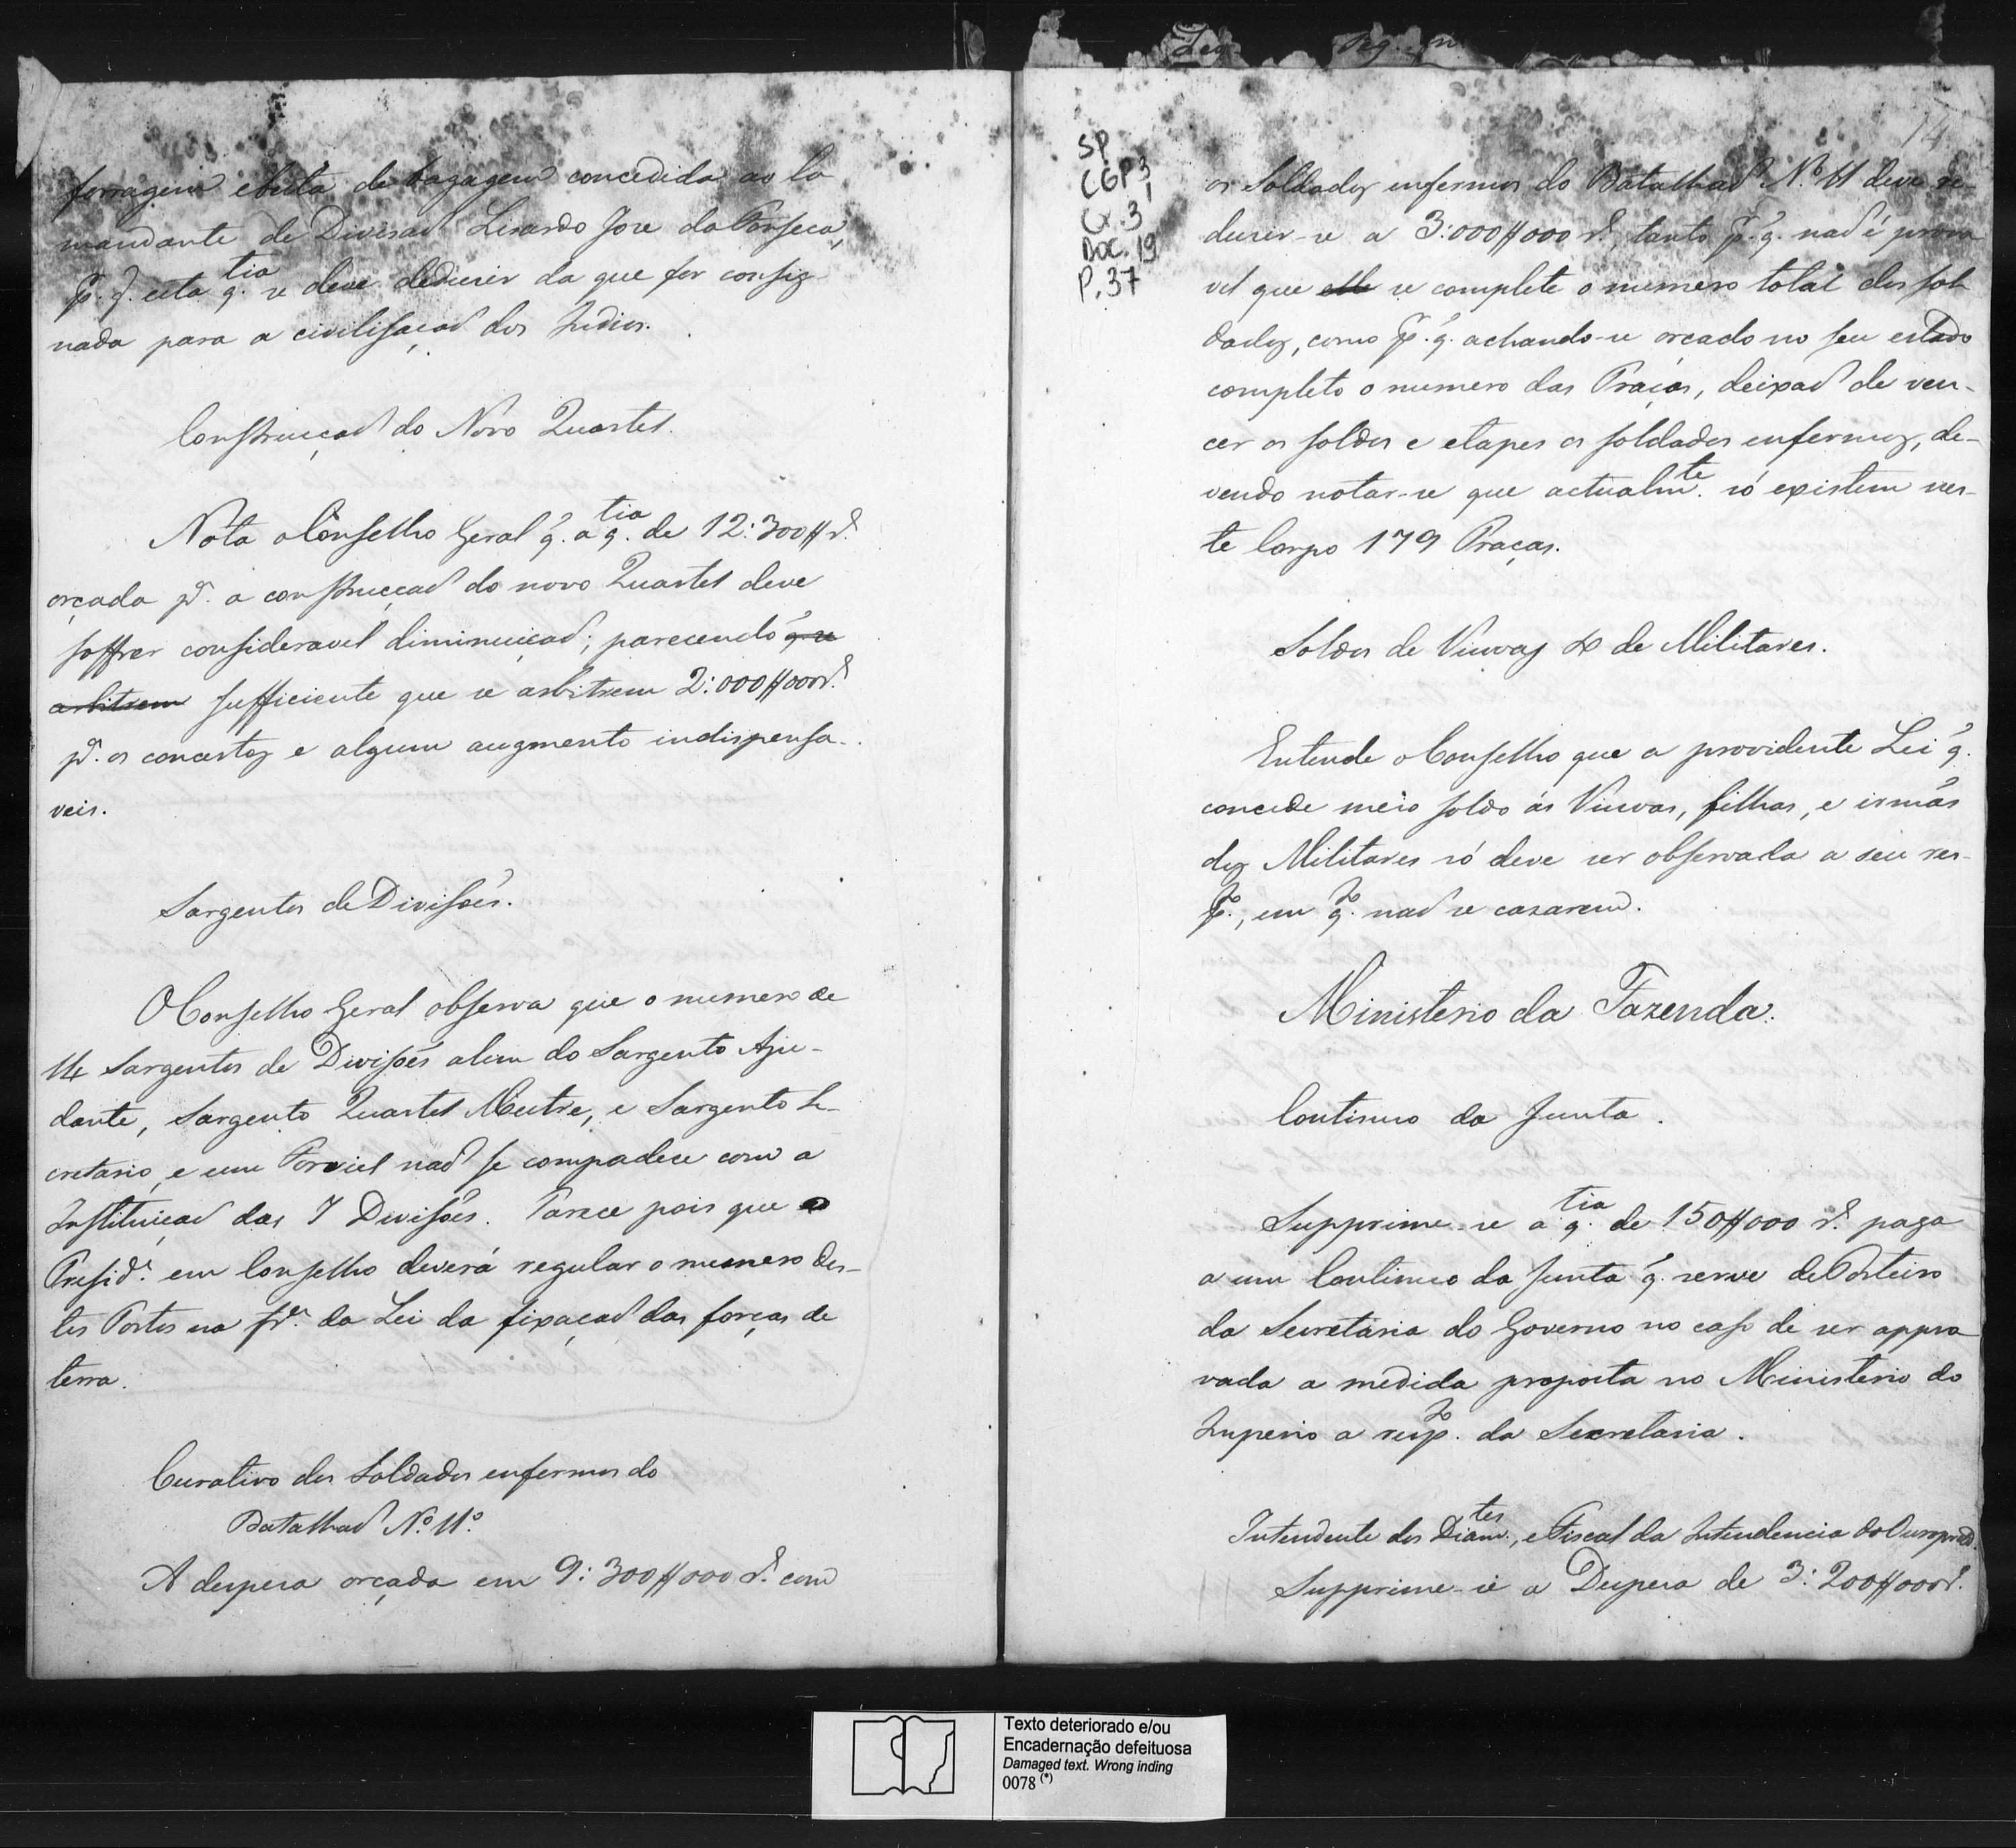 forragem e besta de bagagem concedida ao Co
mandante de Divisaõ Lizardo Joze da Fonseca,
p.r q. esta q.tia se deve deduzir da que for consig-
nada para a civilisaçaõ dos Indios.
Construcçaõ do Novo Quartel.
Nota o Conselho Geral q. a q.tia de 12:300# r.s
orçada p.a a construcçaõ do novo Quartel deve
soffrer consideravel diminuiçaõ; parecendo q. se
arbitrem sufficiente que se arbitrem 2:000#000 r.s
p.a os concertos e algum augmento indispensa-
veis.
Sargentos de Divisões.
O Conselho Geral observa que o numero de
14 Sargentos de Divisões alem do Sargento Aju-
dante, Sargento Quartel Mestre, e Sargento Se-
cretario, e um naõ se compadece com a
Instituiçaõ das 7 Divisões. Parece pois que o
Presid.e em Conselho deverá regular o numero des-
tes Postos na fr.a da Lei da fixaçaõ das forças de
terra.
Curativo dos Soldados enfermos do
Batalhaõ N.º 11.º
A despesa orçada em 9:300#000 r.s com
14
SP
CGP3
1
Cx.3
DOC.19
P.37
os Soldados enfermos do Batalhaõ N.º 11 deve re-
duzir-se a 3:000#000 r.s, tanto p.r q. naõ é prova
vel que elle se complete o numero total dos sol
dados, como p.r q. achando-se orçado no seu estado
completo o numero das Praças, deixaõ de ven-
cer os soldos e etapes os soldados enfermos, de-
vendo notar-se que actualm.te só existem nes-
te Corpo 179 Praças.
Soldos de Viuvas & de Militares.
Entende o Conselho que a providente Lei q.
concede meio soldo ás Viuvas, filhas, e irmãs
dos Militares só deve ser observada a seu res-
p.to, em q.to naõ se casarem.
Ministerio da Fazenda.
Continuo da Junta.
Supprime-se a q.tia de 150#000 r.s paga
a um Continuo da Junta q. serve de Porteiro
da Secretaria do Governo no caso de ser appro
vada a medida proposta no Ministerio do
Imperio a resp.to da Secretaria.
Intendente dos Diam.tes, e Fiscal da Intendencia do
Supprime-se a Despesa de 3:200#000 r.s
Texto deteriorado e/ou
Encadernação defeituosa
Damaged text. Wrong inding
0078 (*)